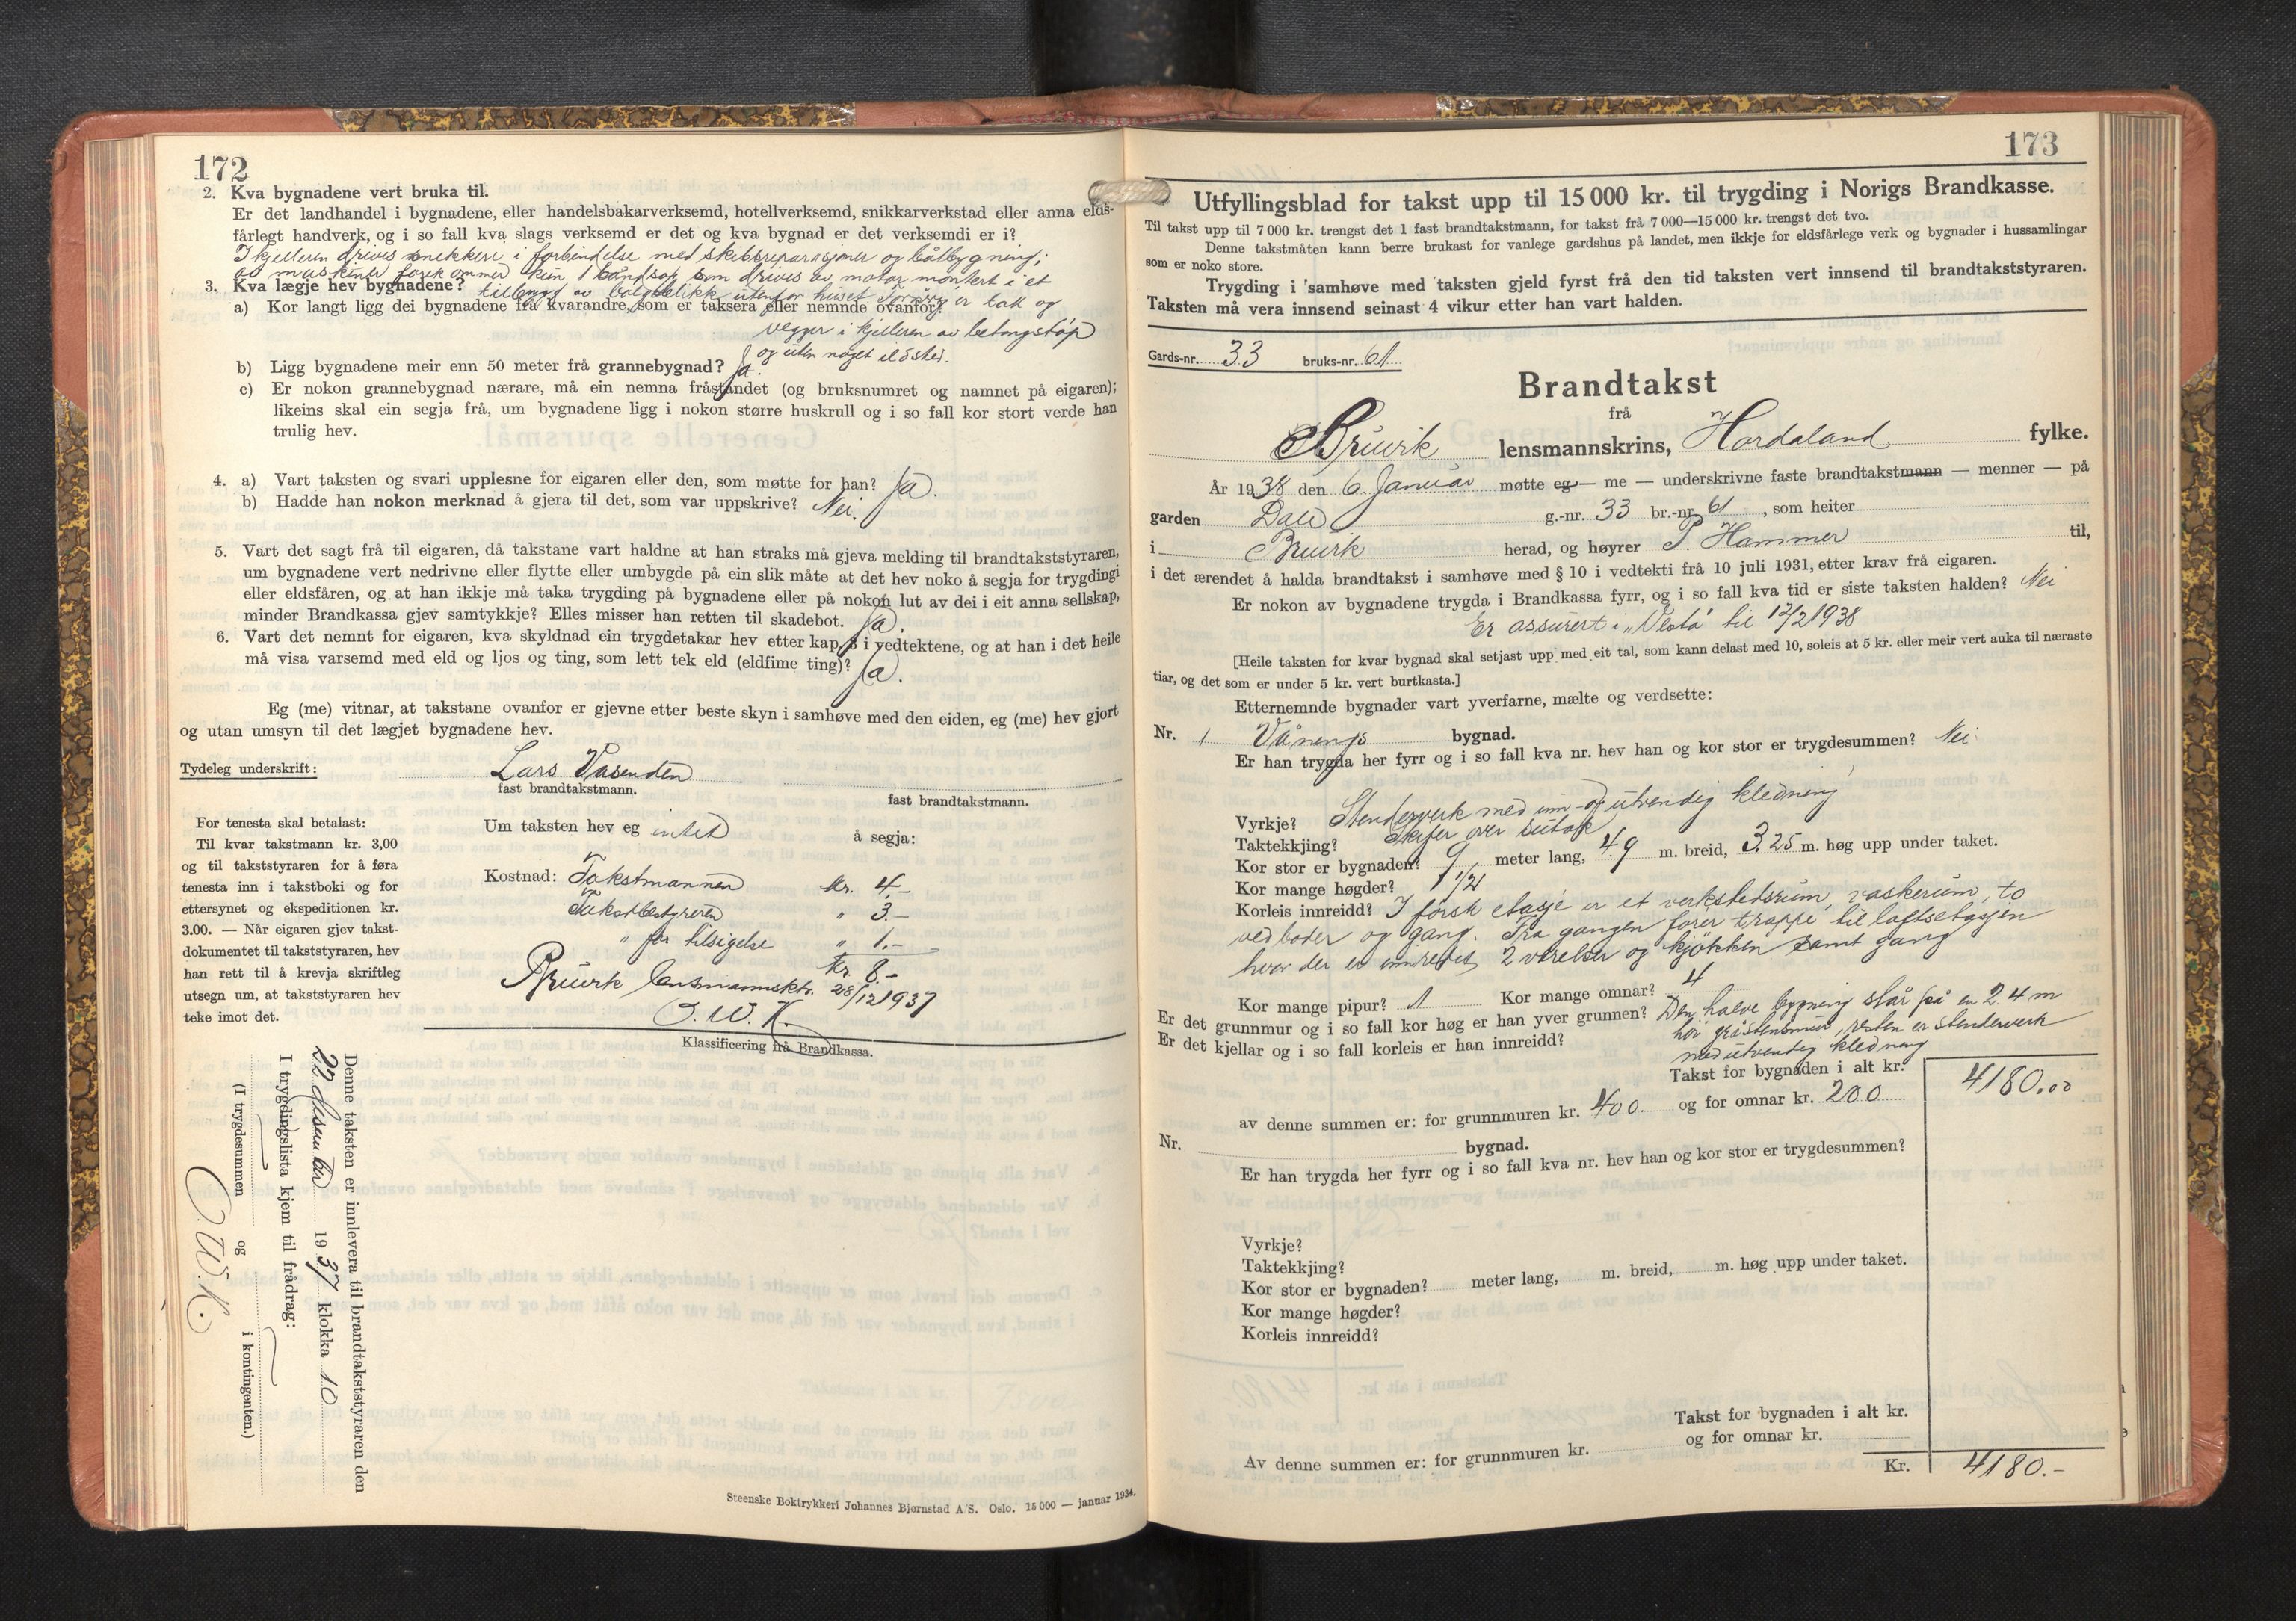 172
2. Kva bygnadene vert bruka til.
Er det landhandel i bygnadene, eller handelsbakarverksemd, hotellverksemd, snikkarverkstad eller anna elds-
fårlegt handverk, og i so fall kva slags verksemd er det og kva bygnad er det verksemdi er i?
I kjelleren drives snekkeri i forbindelse med skibsreparasjoner og båtbygning;
av maskiner forekommer kun 1 båndsag som drives av motor montert i et
3. Kva lægje hev bygnadene? tilbygg av bølgeblikk utenfor huset. Forøvrig er tak og
a) Kor langt ligg dei bygnadene frå kvarandre, som er taksera eller nemnde ovanfor?
vegger i kjelleren av betongstøp
og uten noget ildsted.
b) Ligg bygnadene meir enn 50 meter frå grannebygnad? Ja.
c) Er nokon grannebygnad nærare, må ein nemna fråstandet (og bruksnumret og namnet på eigaren);
likeins skal ein segja frå, um bygnadene ligg i nokon større huskrull og i so fall kor stort verde han
trulig hev.
4. a) Vart taksten og svari upplesne for eigaren eller den, som møtte for han? Ja.
b) Hadde han nokon merknad å gjera til det, som var uppskrive? Nei.
5. Vart det sagt frå til eigaren, då takstane vart haldne at han straks må gjeva melding til brandtakststyraren,
um bygnadene vert nedrivne eller flytte eller umbygde på ein slik måte at det hev noko å segja for trygdingi
eller eldsfåren, og at han ikkje må taka trygding på bygnadene eller på nokon lut av dei i eit anna sellskap,
minder Brandkassa gjev samtykkje? Elles misser han retten til skadebot. Ja.
6. Vart det nemnt for eigaren, kva skyldnad ein trygdetakar hev etter kap. 8 i vedtektene, og at han i det heile
må visa varsemd med eld og ljos og ting, som lett tek eld (eldfime ting)? Ja.
Eg (me) vitnar, at takstane ovanfor er gjevne etter beste skyn i samhøve med den eiden, eg (me) hev gjort
og utan umsyn til det lægjet bygnadene hev.
Tydeleg underskrift: Lars Vasenden
fast brandtakstmann. fast brandtakstmann.
For tenesta skal betalast:
Til kvar takstmann kr. 3,00
og til takststyraren for å føra
tenesta inn i takstboki og for
ettersynet og ekspeditionen kr.
3.00. — Når eigaren gjev takst-
dokumentet til takststyraren, hev
han rett til å krevja skriftleg
utsegn um, at takststyraren hev
teke imot det.
Um taksten hev eg intet å segja:
Kostnad: Takstmannen kr. 4,-
Takstbestyreren " 3.-
" for tilsigelse " 1.-
kr. 8.-
Bruvik lensmannsktr. 28/12 1937
O. W. K.
Klassificering frå Brandkassa.
Denne taksten er innlevera til brandtakststyraren den
22 desember 1937 klokka 10
I trygdingslista kjem til frådrag:
(I trygdesummen og i kontingenten.)
O. W. K.
Steenske Boktrykkeri Johannes Bjørnstad A/S. Oslo. 15 000 — januar 1934.
173
Utfyllingsblad for takst upp til 15 000 kr. til trygding i Norigs Brandkasse.
Til takst upp til 7 000 kr. trengst det 1 fast brandtakstmann, for takst frå 7 000—15 000 kr. trengst det tvo.
Denne takstmåten kann berre brukast for vanlege gardshus på landet, men ikkje for eldsfårlege verk og bygnader i hussamlingar
som er noko store.
Trygding i samhøve med taksten gjeld fyrst frå den tid taksten vert innsend til brandtakststyraren.
Taksten må vera innsend seinast 4 vikur etter han vart halden.
Gards-nr. 33 bruks-nr. 61
Brandtakst
frå
Bruvik lensmannskrins, Hordaland fylke.
År 1938 den 6. Januar møtte eg — me — underskrivne faste brandtakstmann — menner — på
garden Dale g.-nr. 33 br.-nr. 61, som heiter
i Bruvik herad, og høyrer P. Hammer til,
i det ærendet å halda brandtakst i samhøve med § 10 i vedtekti frå 10 juli 1931, etter krav frå eigaren.
Er nokon av bygnadene trygda i Brandkassa fyrr, og i so fall kva tid er siste taksten halden? Nei
Er assurert i „Vesta" til 12/2 1938
[Heile taksten for kvar bygnad skal setjast upp med eit tal, som kann delast med 10, soleis at 5 kr. eller meir vert auka til næraste
tiar, og det som er under 5 kr. vert burtkasta.]
Etternemnde bygnader vart yverfarne, mælte og verdsette:
Nr. 1 Vånings bygnad.
Er han trygda her fyrr og i so fall kva nr. hev han og kor stor er trygdesummen? Nei
Vyrkje? Stenderverk med inn- og utvendig kledning
Taktekkjing? Skifer over sutak
Kor stor er bygnaden? 9 meter lang, 4.9 m. breid, 3.25 m. høg upp under taket.
Kor mange høgder? 1 1/2
Korleis innreidd? I første etasje er et verkstedsrum, vaskerum, to
vedboder og gang. Fra gangen fører trappe til loftsetasjen
hvor der er innredet 2 værelser og kjøkken samt gang
Kor mange pipur? 1 Kor mange omnar? 4
Er det grunnmur og i so fall kor høg er han yver grunnen? Den halve bygning står på en 2.4 m
Er det kjellar og i so fall korleis er han innreidd? høi gråstensmur, resten er stenderverk
med utvendig kledning
Takst for bygnaden i alt kr. 4180.00
av denne summen er: for grunnmuren kr. 400. og for omnar kr. 200
Nr. bygnad.
Er han trygda her fyrr og i so fall kva nr. hev han og kor stor er trygdesummen?
Vyrkje?
Taktekkjing?
Kor stor er bygnaden? meter lang, m. breid, m. høg upp under taket.
Kor mange høgder?
Korleis innreidd?
Takst for bygnaden i alt kr.
Av denne summen er: for grunnmuren kr. og for omnar kr.
Kr. 4180.-